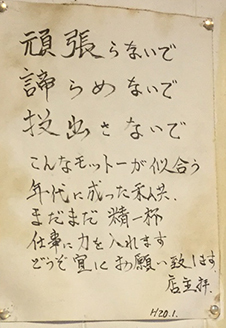 頑張らないで
諦らめないで
投出さないで
こんなモットーが似合う
年代に成った私共.
まだまだ 精一杯
仕事に力を入れます
どうぞ宜にお願い致します.
店主拝.
H20.1.